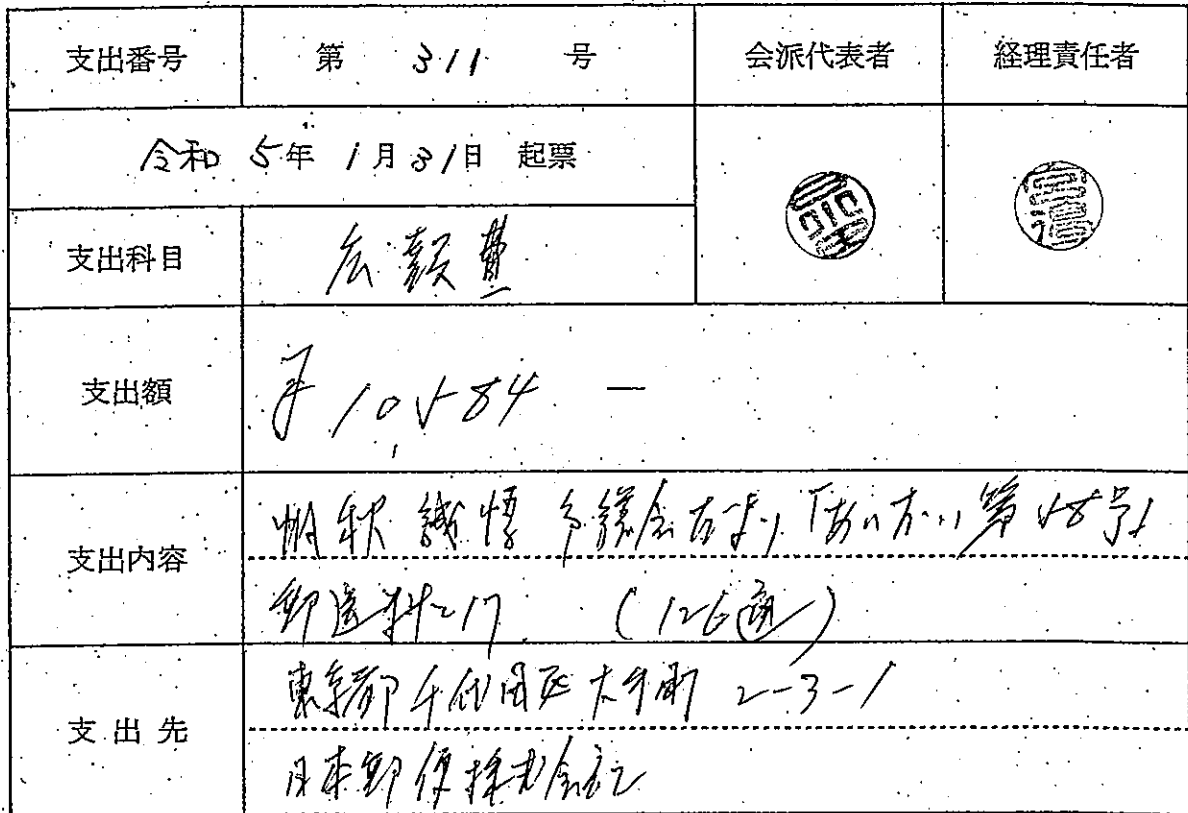 支出番号 第 311 号 会派代表者 経理責任者
令和 5年 1月31日 起票
支出科目 広報費
支出額 10,584 ー
支出内容 市議会だより
郵送料 (126通)
支出先 東京都千代田区大手町 2-3-1
日本郵便株式会社